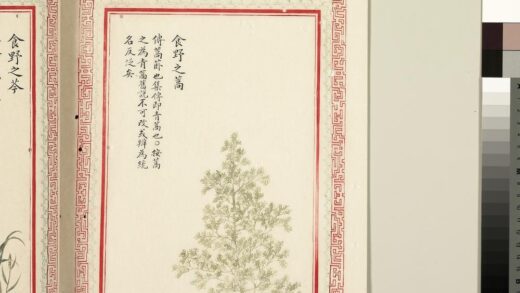 食野之蒿
傳蒿菣也集傳即青蒿也○按蒿
之為青蒿舊說不可改或辨為統
名反泛矣
食野之芩